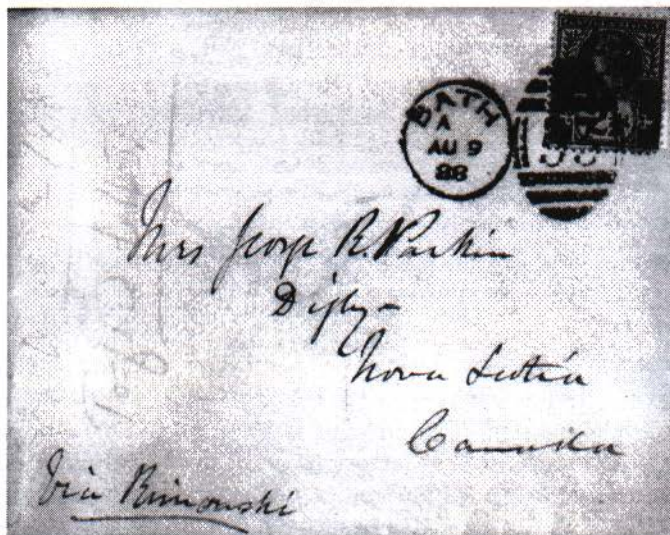 BATH
A
AU 9
88
Mrs George R. Parkin
Digby
Nova Scotia
Canada
Via Rimouski